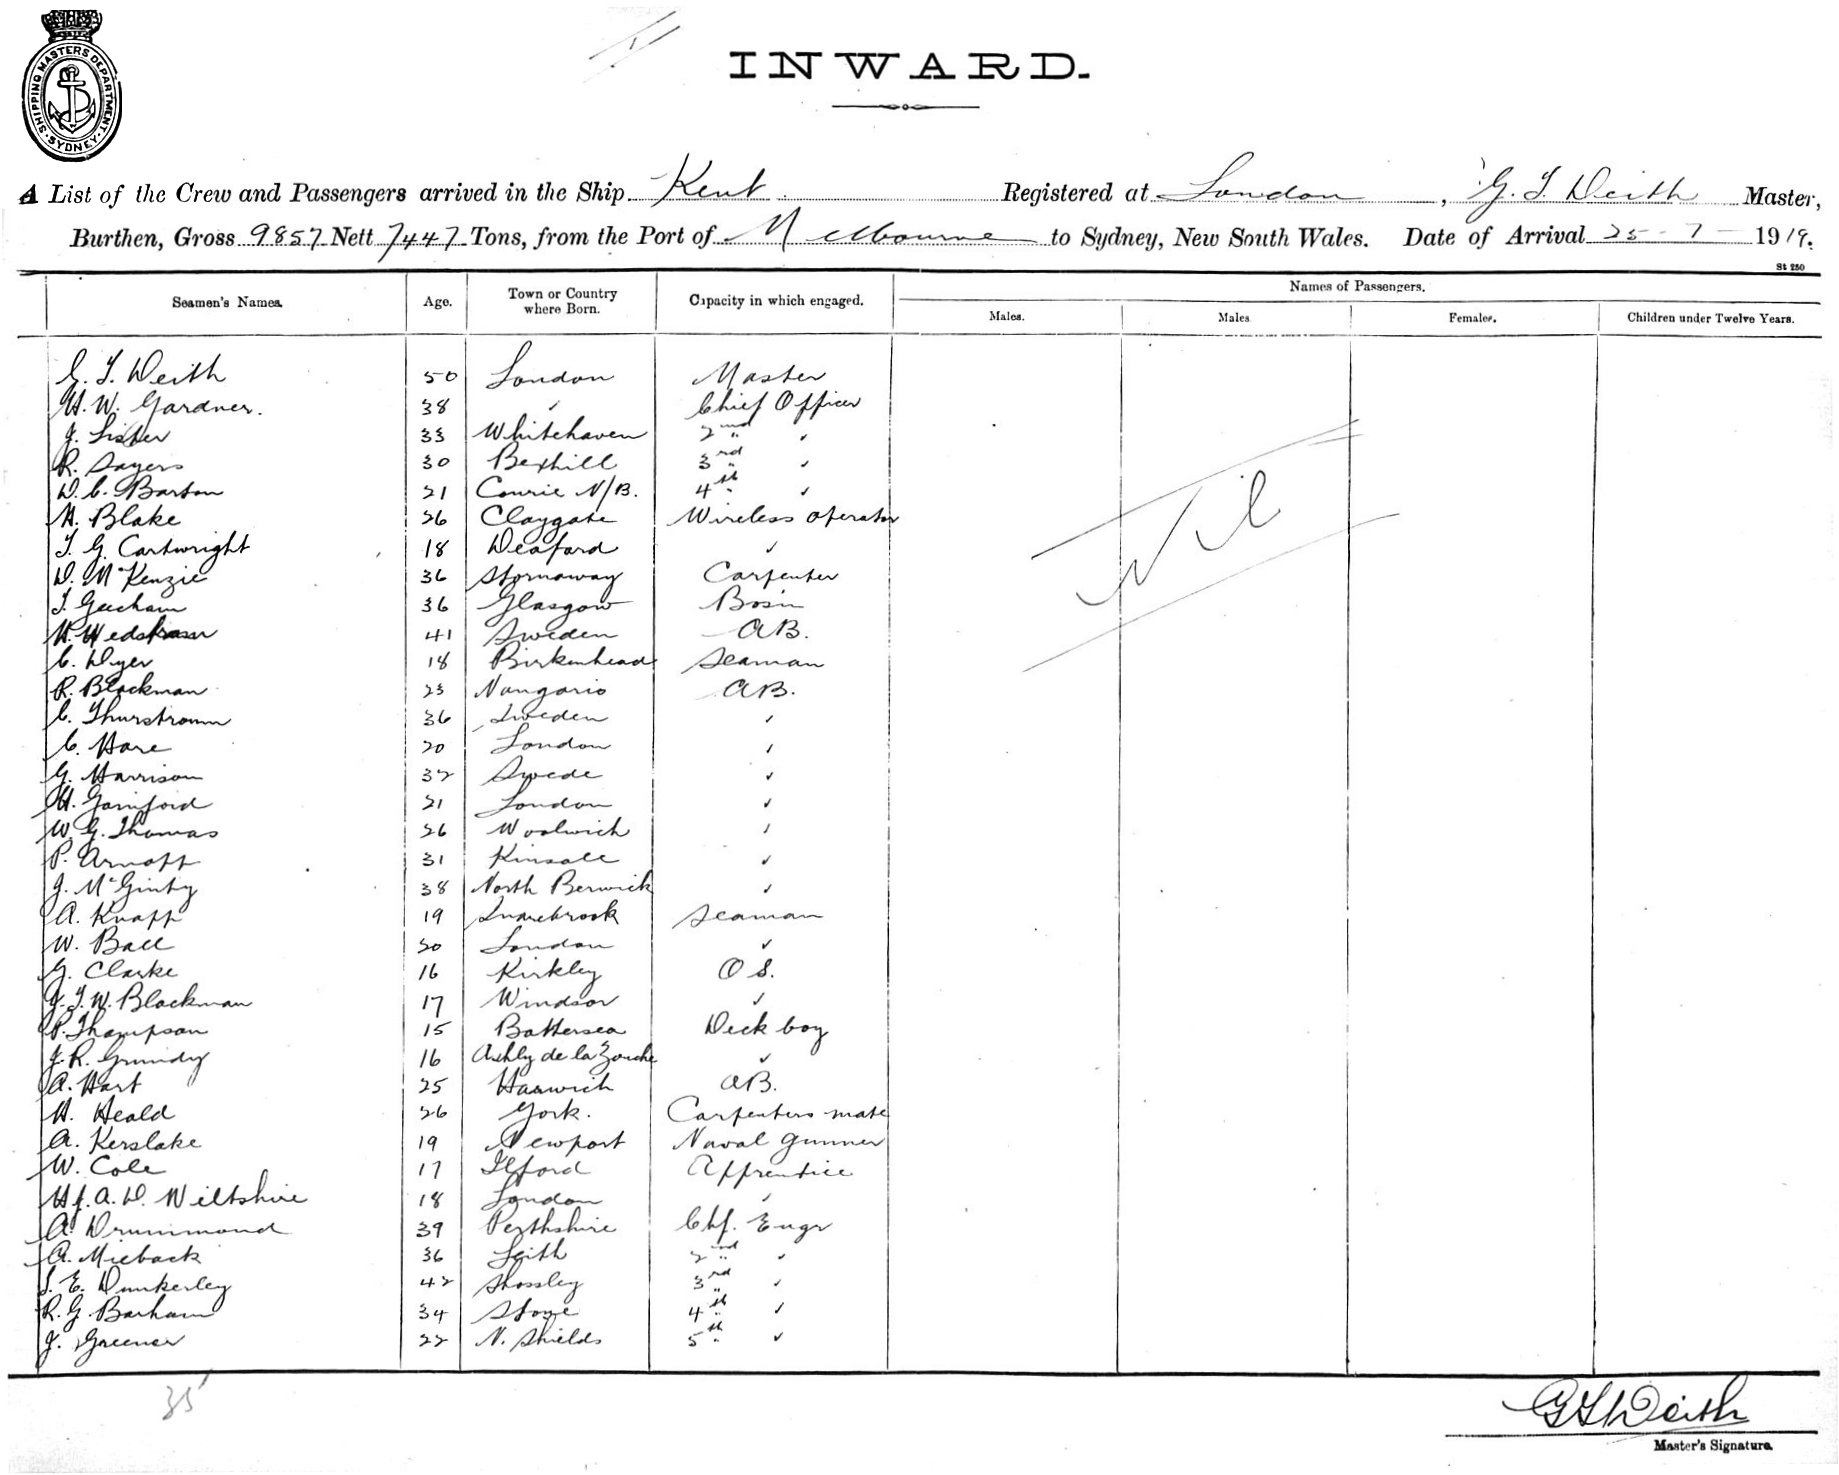 SHIPPING MASTERS DEPARTMENT
SYDNEY
INWARD.
A List of the Crew and Passengers arrived in the Ship Kent Registered at London, G. T. Deith Master,
Burthen, Gross 9857 Nett 7447 Tons, from the Port of Melbourne to Sydney, New South Wales. Date of Arrival 25-7-1919.
St 250
Seamen's Names. Age. Town or Country where Born. Capacity in which engaged. Names of Passengers.
Males. Males Females. Children under Twelve Years.
G. T. Deith 50 London Master
H. W. Gardner. 38 " Chief Officer
J. Lister 33 Whitehaven 2nd " "
R. Sayers 30 Bexhill 3rd " "
D. C. Barton 21 N/B. 4th " "
H. Blake 26 Claygate Wireless Operator
T. G. Cartwright 18 "
D. McKenzie 36 Stornaway Carpenter
T. 36 Glasgow Bosin
H. 41 Sweden AB.
C. Dyer 18 Birkenhead Seaman
R. Blackman 23 AB.
C. Thurstromm 36 Sweden "
C. Hare 20 London "
G. Harrison 32 Swede "
H. Gainford 21 London "
W. G. Thomas 26 Woolwich "
P. 31 Kinsale "
J. McGinty 38 North Berwick "
A. Knapp 19 Snarebrook Seaman
W. Ball 20 London "
G. Clarke 16 Kirkley O S.
J. T. W. Blackman 17 Windsor "
P. Thompson 15 Battersea Deck boy
J. R. Grundy 16 Ashly de la Zouche "
A. Hart 25 Harwich AB.
H. Heald 26 York. Carpenters mate
A. Kerslake 19 Newport Naval Gunner
W. Cole 17 Ilford Apprentice
H. J. A. D. Wiltshire 18 London "
A. Drummond 39 Perthshire Chf. Engr
A. Mieback 36 Leith 2nd " "
S. E. Dunkerley 42 3rd " "
R. G. Barham 34 Stoye 4th " "
J. Greener 22 N. Shields 5th " "
Nil
35
G T Deith
Master's Signature.